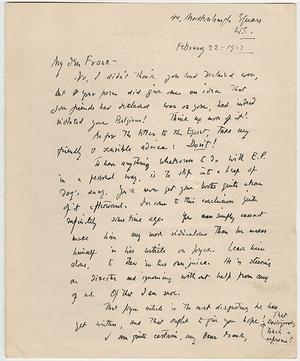 44, Mecklenburgh Square
W.C.
February 22 - 1917
My dear Frank -
No, I didn't think you had declared war,
but your poem did give me an idea that
friends had declared war on you, had indeed
violated your Belgium! Think no more of it!
As for the letter to the Egoist, take my
friendly & sensible advice: Don't!
To have anything whatsoever to do with E.P.
in a personal way, is to step into a heap of
dog's dung. You never get your boots quite clean
of it afterward. I've come to this conclusion quite
definitely some time ago. You simply cannot
make him any more ridiculous than he makes
himself in his article on Joyce. Leave him
alone, to stew in his own juice. He is steering
on disaster and ignominy without help from any
of us. Of that I am sure.
That Joyce article is the most disgusting he has
yet written, and that ought to give you hope!
I am quite certain, my dear Frank,